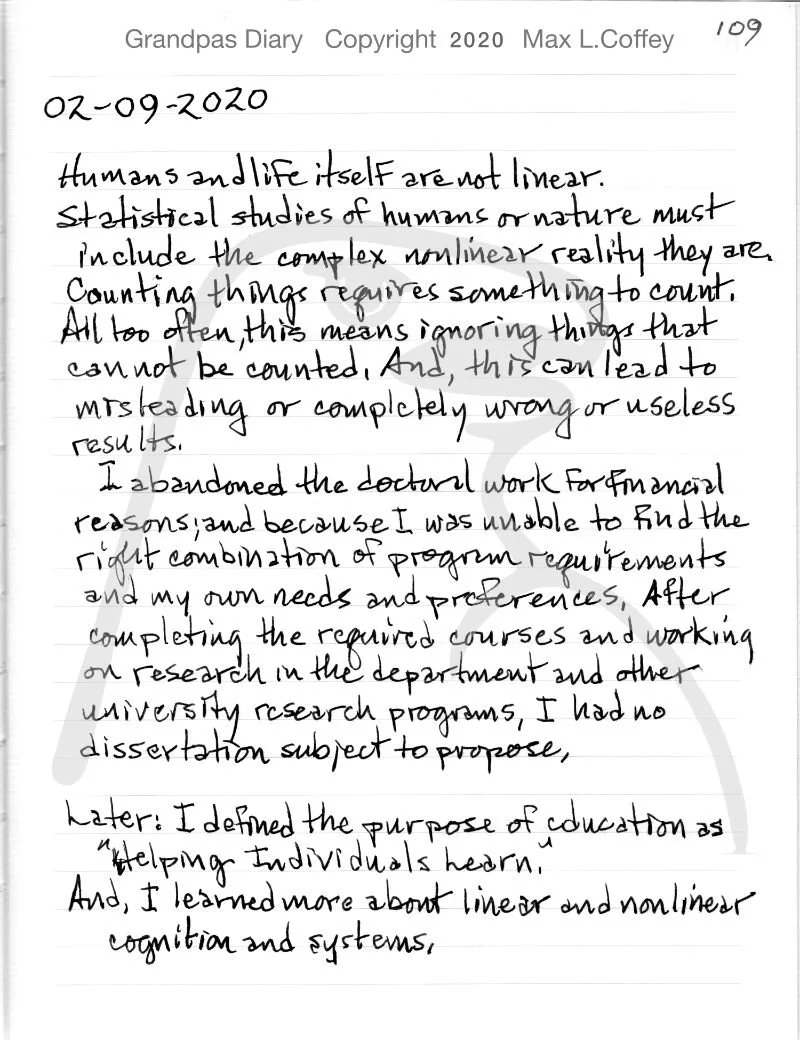 Grandpas Diary Copyright 2020 Max L.Coffey 109
02-09-2020
Humans and life itself are not linear.
Statistical studies of humans or nature must
include the complex nonlinear reality they are.
Counting things requires something to count.
All too often, this means ignoring things that
cannot be counted. And, this can lead to
misleading or completely wrong or useless
results.
I abandoned the doctoral work for financial
reasons; and because I was unable to find the
right combination of program requirements
and my own needs and preferences. After
completing the required courses and working
on research in the department and other
university research programs, I had no
dissertation subject to propose.
Later: I defined the purpose of education as
"Helping Individuals Learn."
And, I learned more about linear and nonlinear
cognition and systems.